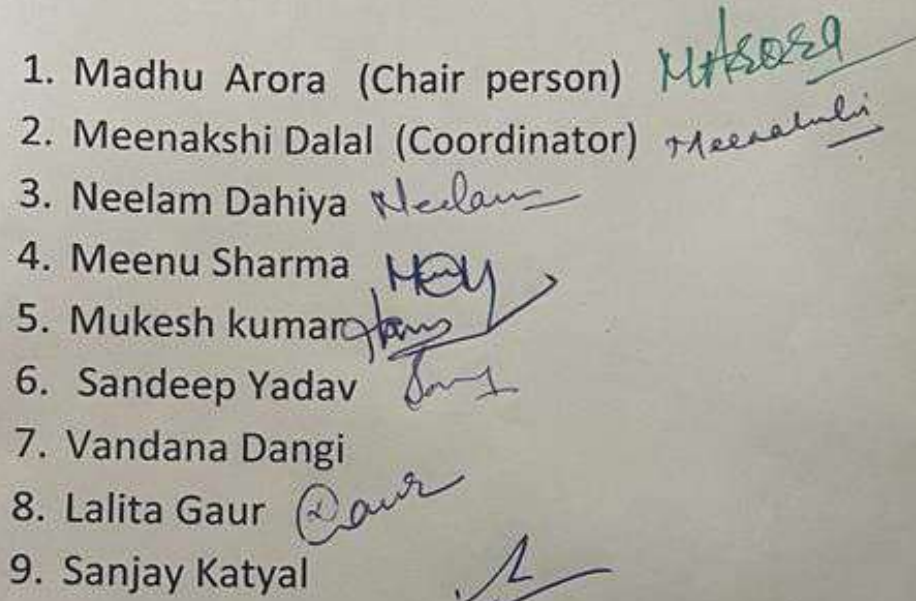 1. Madhu Arora (Chair person) MArora
2. Meenakshi Dalal (Coordinator) Meenakshi
3. Neelam Dahiya Neelam
4. Meenu Sharma
5. Mukesh kumar
6. Sandeep Yadav
7. Vandana Dangi
8. Lalita Gaur Gaur
9. Sanjay Katyal